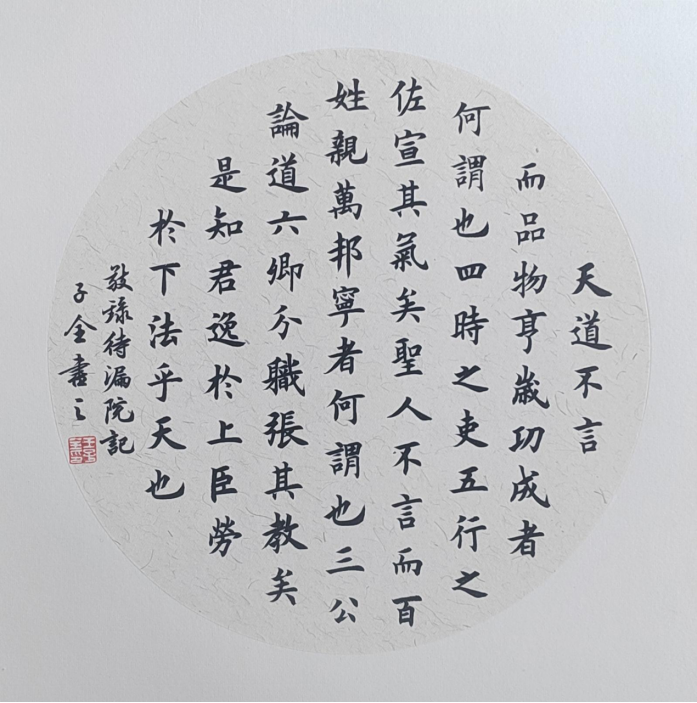 天道不言
而品物亨歲功成者
何謂也四時之吏五行之
佐宣其氣矣聖人不言而百
姓親萬邦寧者何謂也三公
論道六卿分職張其教矣
是知君逸於上臣勞
於下法乎天也
敬録待漏院記
子金書之